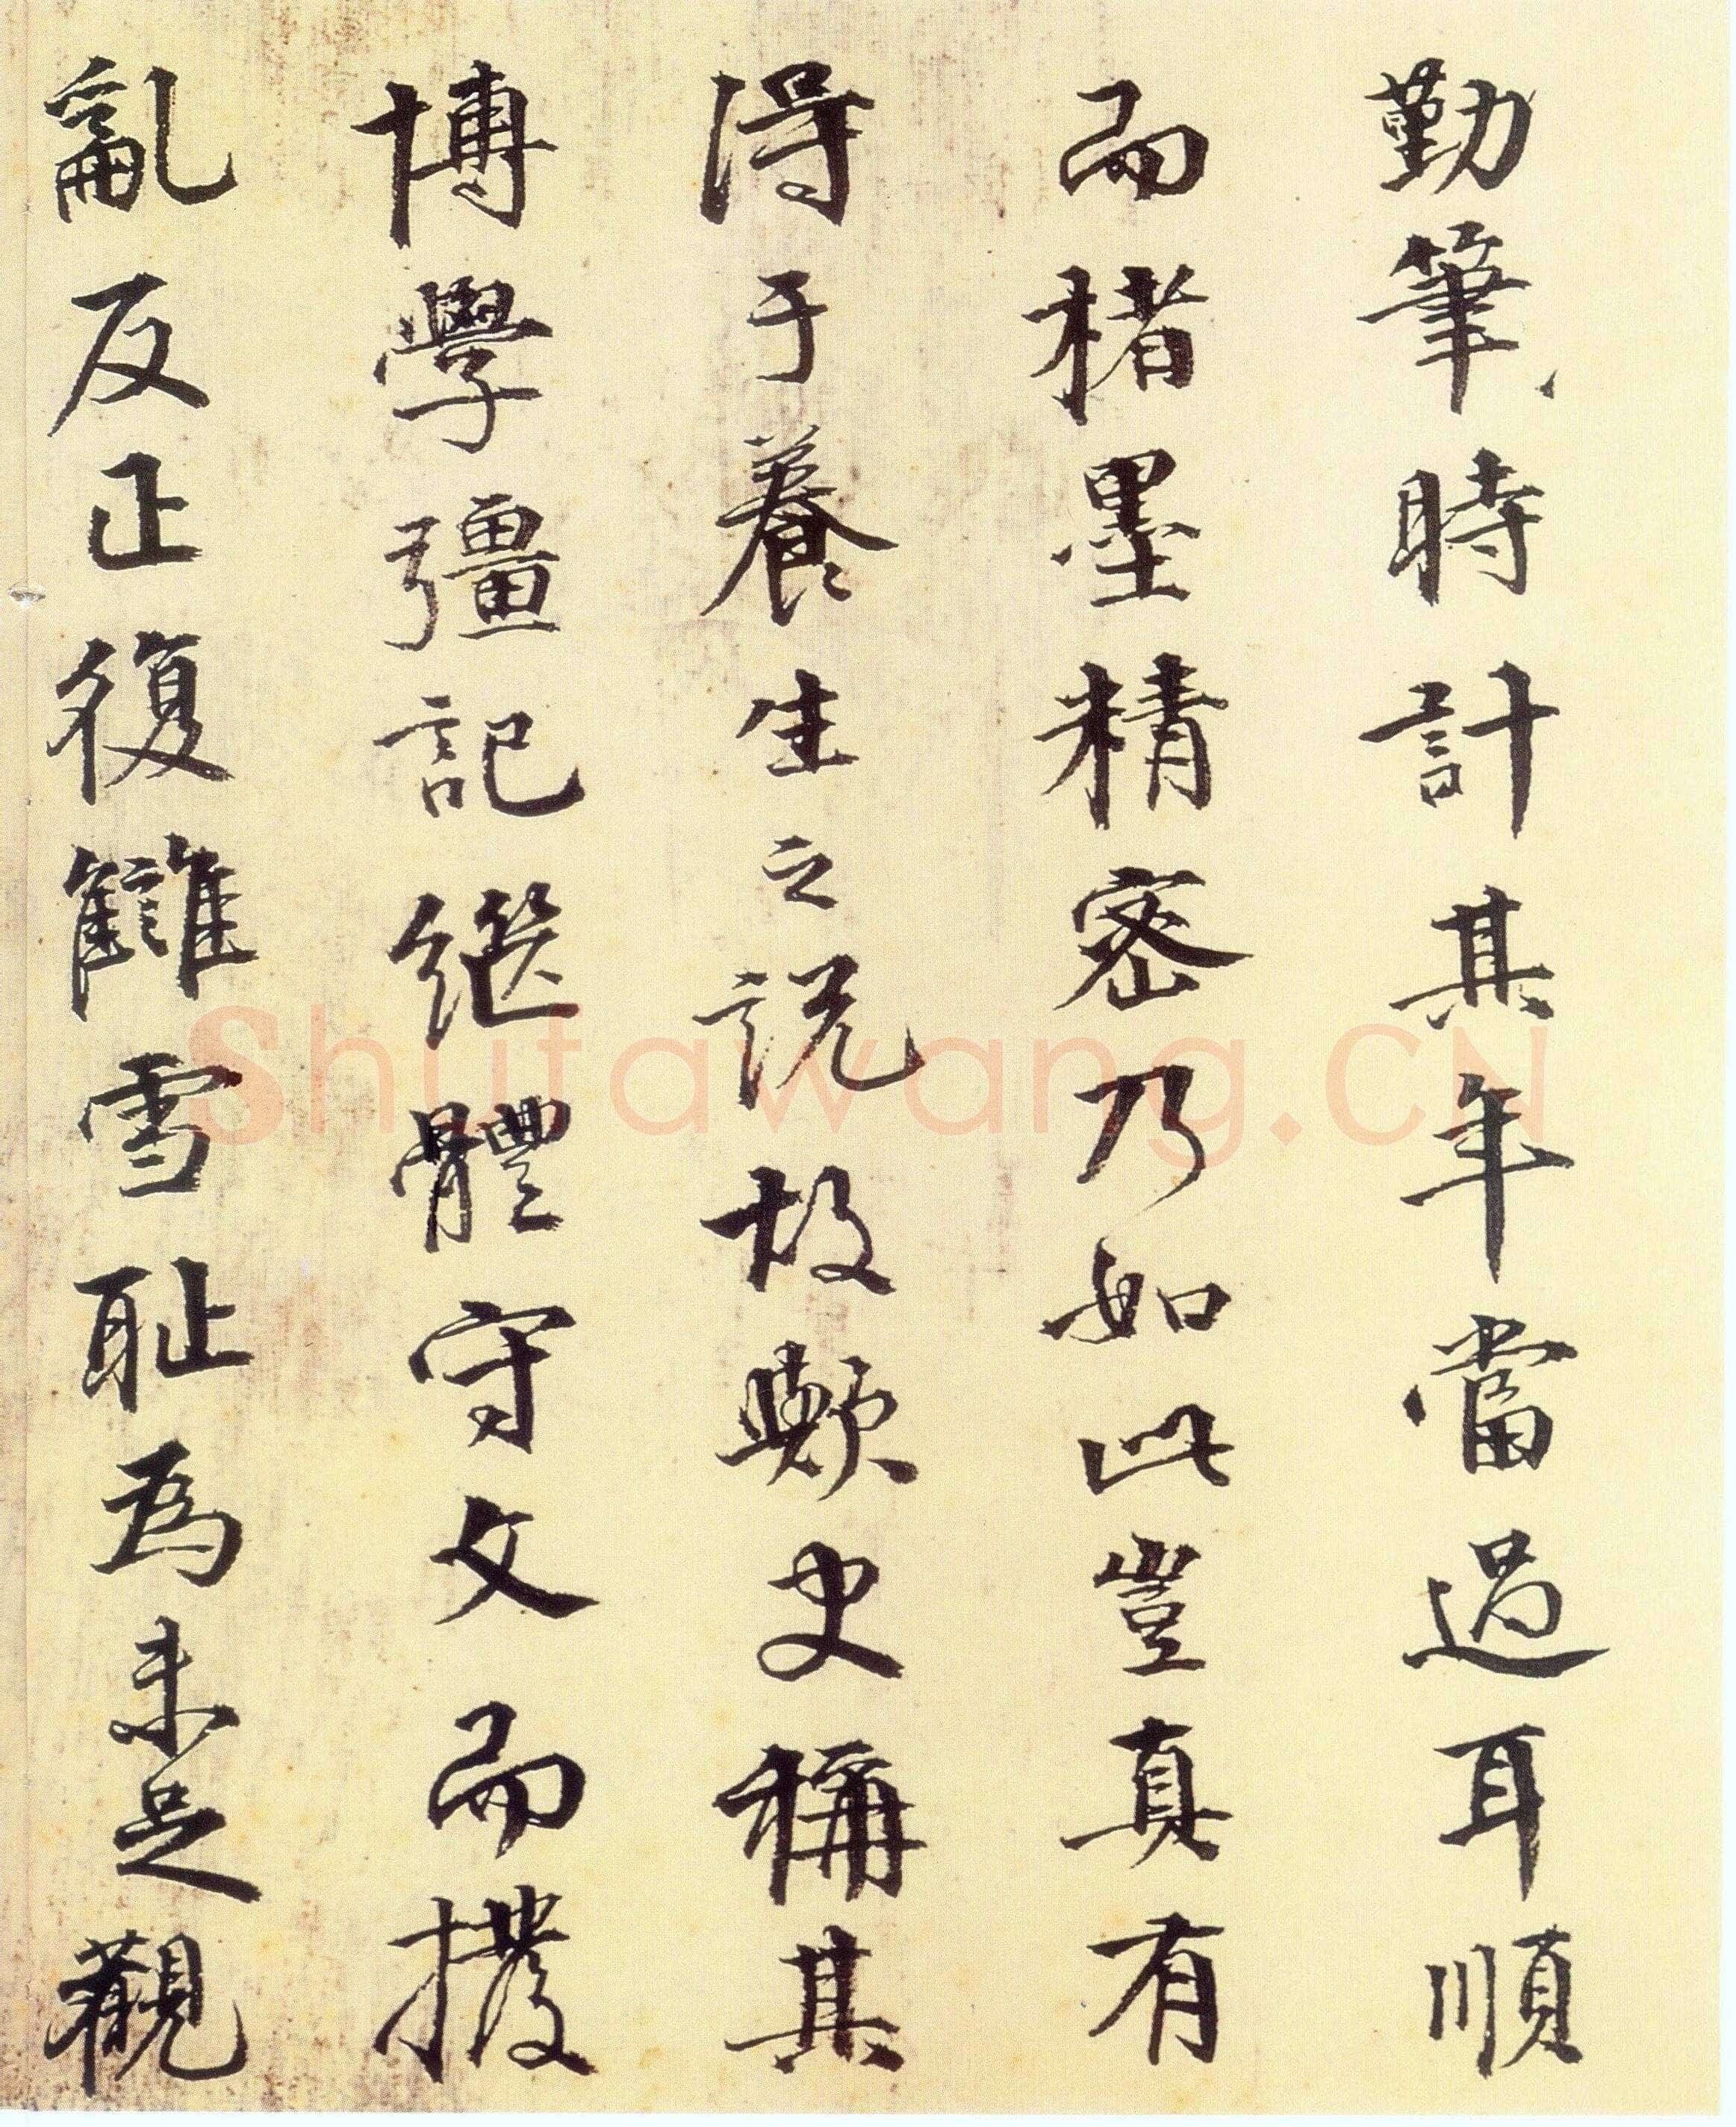 勤筆時計其年當過耳順
而楮墨精密乃如此豈真有
得于養生之説故歟史稱其
博學彊記繼體守文而撥
亂反正復讎雪恥為未足觀
Shufawang.CN